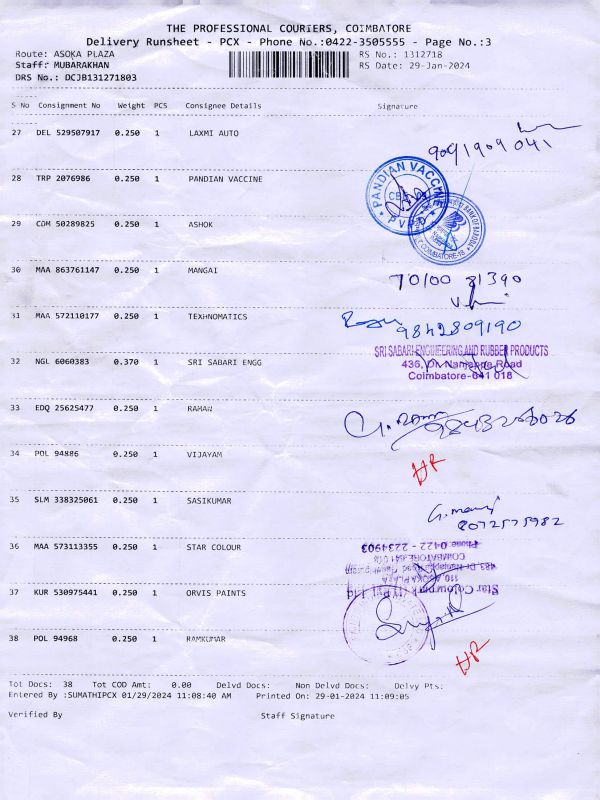 THE PROFESSIONAL COURIERS, COIMBATORE
Delivery Runsheet - PCX - Phone No.:0422-3505555 - Page No.:3
Route: ASOKA PLAZA RS No.: 1312718
Staff: MUBARAKHAN RS Date: 29-Jan-2024
DRS No.: DCJB131271803
S No Consignment No Weight PCS Consignee Details Signature
27 DEL 529507917 0.250 1 LAXMI AUTO
9091909041
28 TRP 2076986 0.250 1 PANDIAN VACCINE
PANDIAN VACCINE
PVPD
29 COM 50289825 0.250 1 ASHOK
COIMBATORE-18
30 MAA 863761147 0.250 1 MANGAI
70100 81390
31 MAA 572110177 0.250 1 TEXHNOMATICS
9842809190
32 NGL 6060383 0.370 1 SRI SABARI ENGG
SRI SABARI ENGINEERING AND RUBBER PRODUCTS
436, Dr. Nanjappa Road
Coimbatore-641 018
33 EDQ 25625477 0.250 1 RAMAN
G. Raman
34 POL 94886 0.250 1 VIJAYAM
HR
35 SLM 338325061 0.250 1 SASIKUMAR
8072575982
36 MAA 573113355 0.250 1 STAR COLOUR
Star Colourpark (I) Pvt Ltd
110, ASOKA PLAZA
483, Dr. Nanjappa Road
COIMBATORE-641 018
Phone: 0422 - 2234903
37 KUR 530975441 0.250 1 ORVIS PAINTS
38 POL 94968 0.250 1 RAMKUMAR
HR
Tot Docs: 38 Tot COD Amt: 0.00 Delvd Docs: Non Delvd Docs: Delvy Pts:
Entered By :SUMATHIPCX 01/29/2024 11:08:40 AM Printed On: 29-01-2024 11:09:05
Verified By Staff Signature